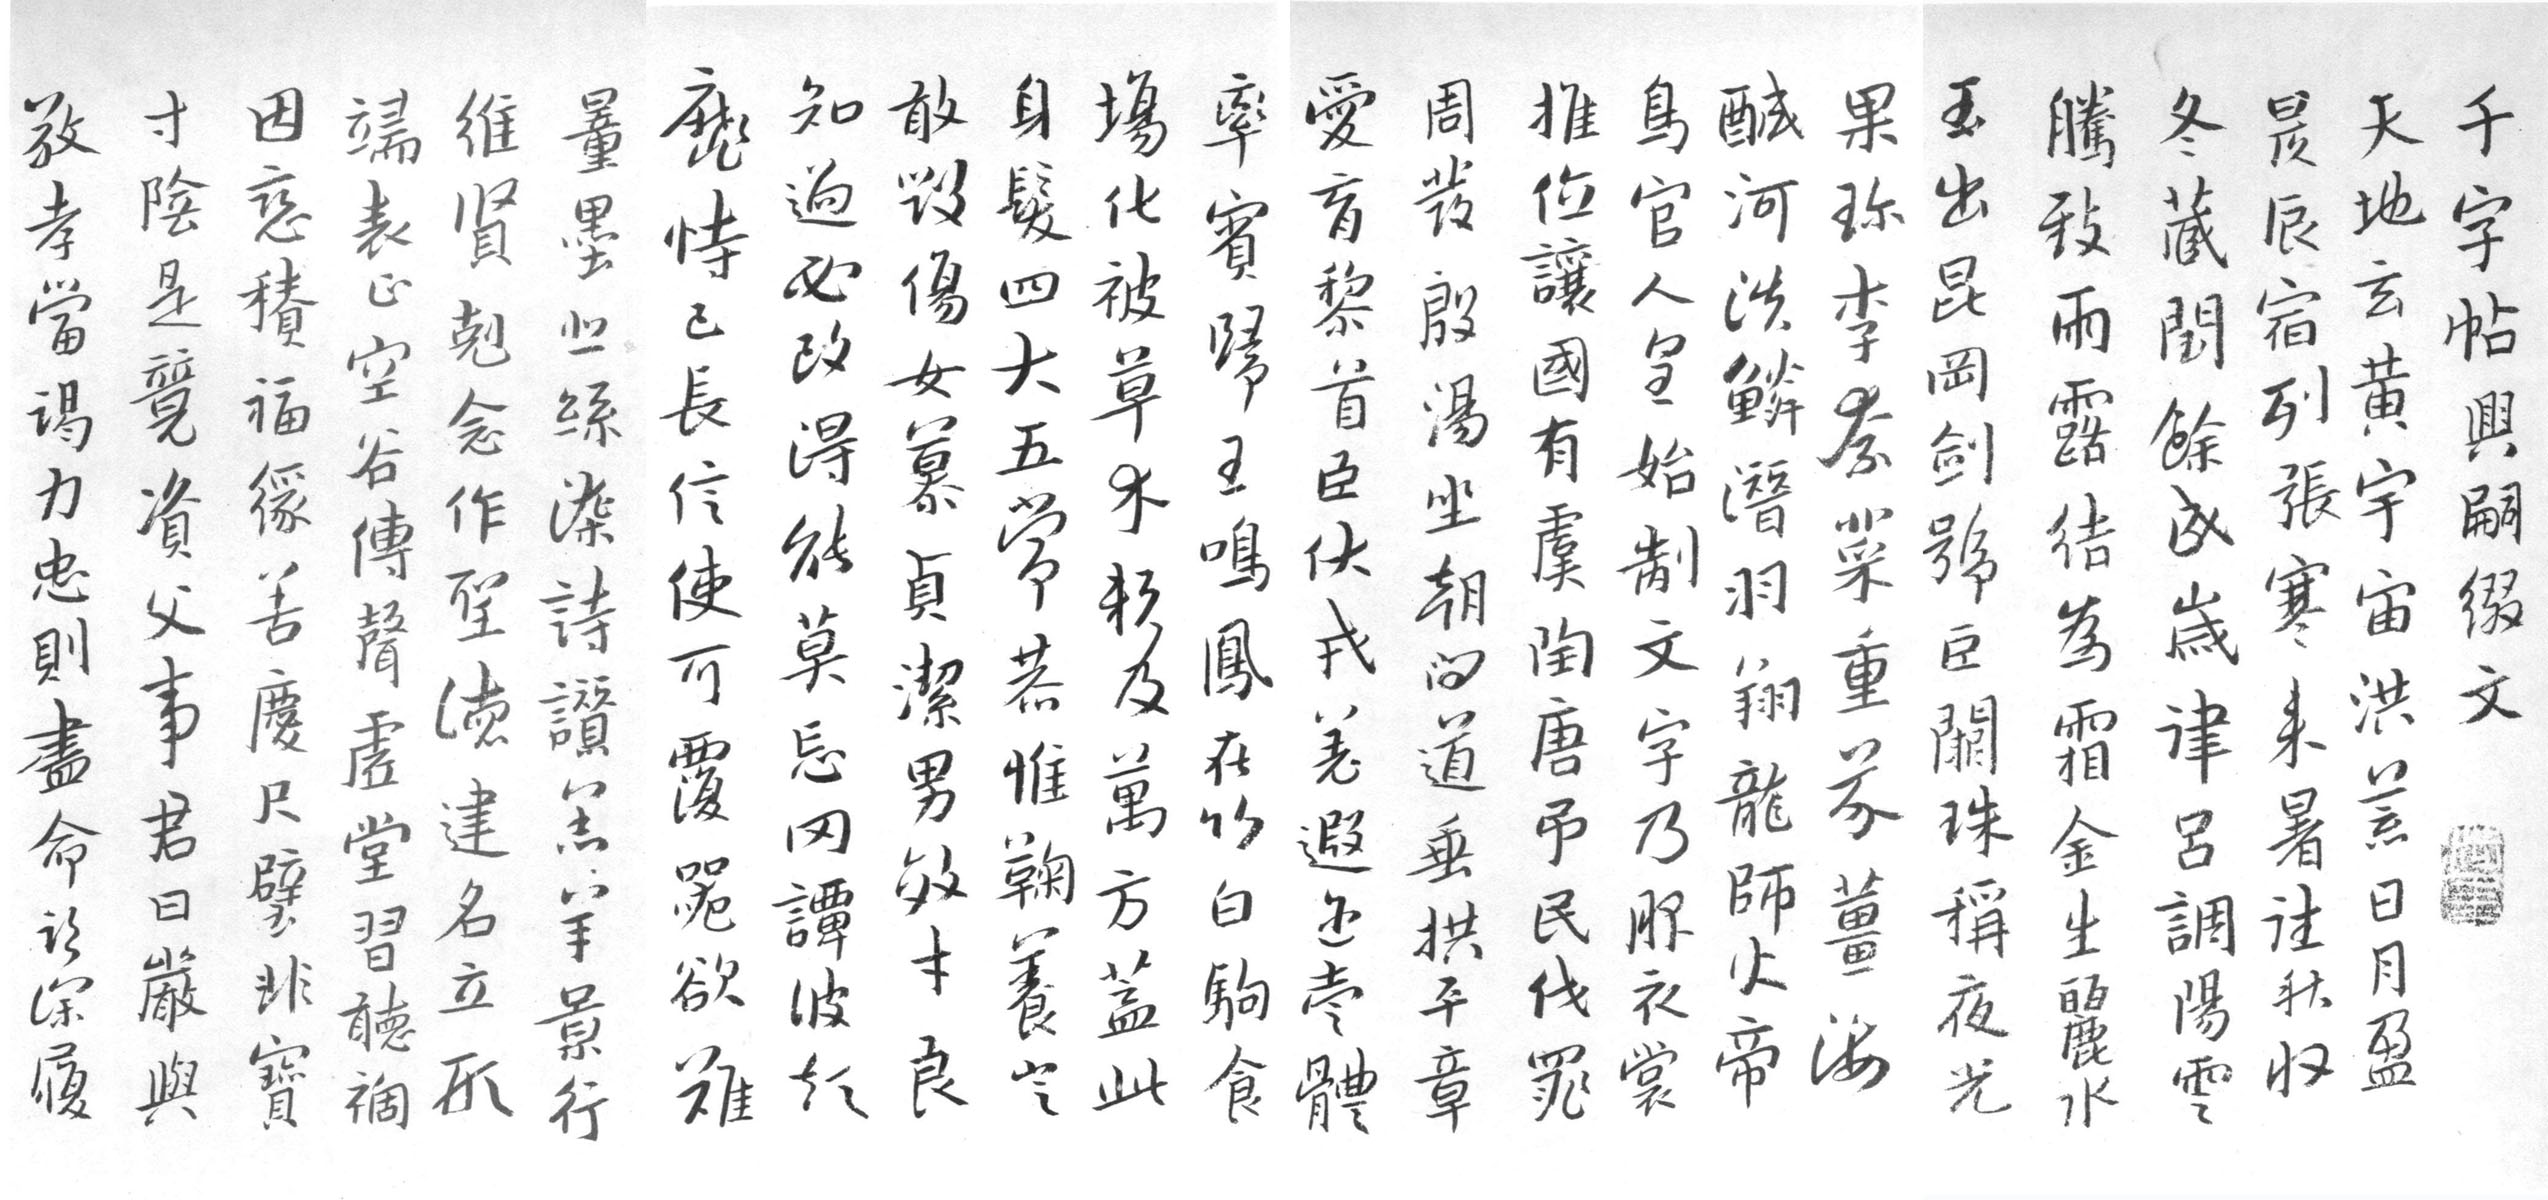 千字帖興嗣綴文
天地玄黄宇宙洪荒日月盈
昃辰宿列張寒来暑往秋收
冬藏閏餘成歲律呂調陽雲
騰致雨露結為霜金生麗水
玉出昆岡劍號巨闕珠稱夜光
果珍李柰菜重芥薑海
醎河淡鱗潛羽翔龍師火帝
鳥官人皇始制文字乃服衣裳
推位讓國有虞陶唐弔民伐罪
周發殷湯坐朝問道垂拱平章
愛育黎首臣伏戎羌遐迩壹體
率賓歸王鳴鳳在竹白駒食
場化被草木賴及萬方蓋此
身髮四大五常恭惟鞠養豈
敢毀傷女慕貞潔男效才良
知過必改得能莫忘罔譚彼短
靡恃己長信使可覆器欲難
量墨悲絲染詩讚羔羊景行
維賢剋念作聖德建名立形
端表正空谷傳聲虛堂習聽禍
因惡積福緣善慶尺璧非寶
寸陰是競資父事君曰嚴與
敬孝當竭力忠則盡命臨深履